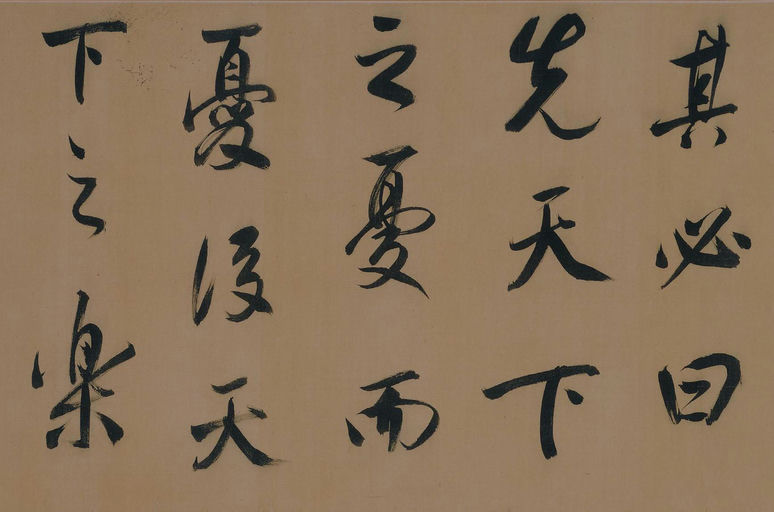 其必曰
先天下
之憂而
憂後天
下之樂